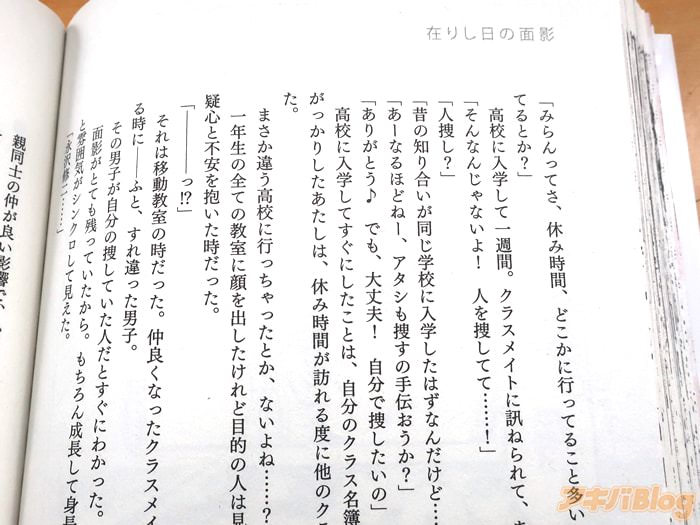 在りし日の面影
「みらんってさ、休み時間、どこかに行ってること多い
てるとか？」
高校に入学して一週間。クラスメイトに訊ねられて、
「そんなんじゃないよ！　人を捜してて……！」
「人捜し？」
「昔の知り合いが同じ学校に入学したはずなんだけど…
「あーなるほどねー、アタシも捜すの手伝おうか？」
「ありがとう♪　でも、大丈夫！　自分で捜したいの」
高校に入学してすぐにしたことは、自分のクラス名簿
がっかりしたあたしは、休み時間が訪れる度に他のク
た。
まさか違う高校に行っちゃったとか、ないよね……？
一年生の全ての教室に顔を出したけれど目的の人は見
疑心と不安を抱いた時だった。
「――――っ!?」
それは移動教室の時だった。仲良くなったクラスメイ
る時に――ふと、すれ違った男子。
その男子が自分の捜していた人だとすぐにわかった。
面影がとても残っていたから。もちろん成長して身長
と雰囲気がシンクロして見えた。
「永沢修二……」
親同士の仲が良い影響で、
アキバBlog